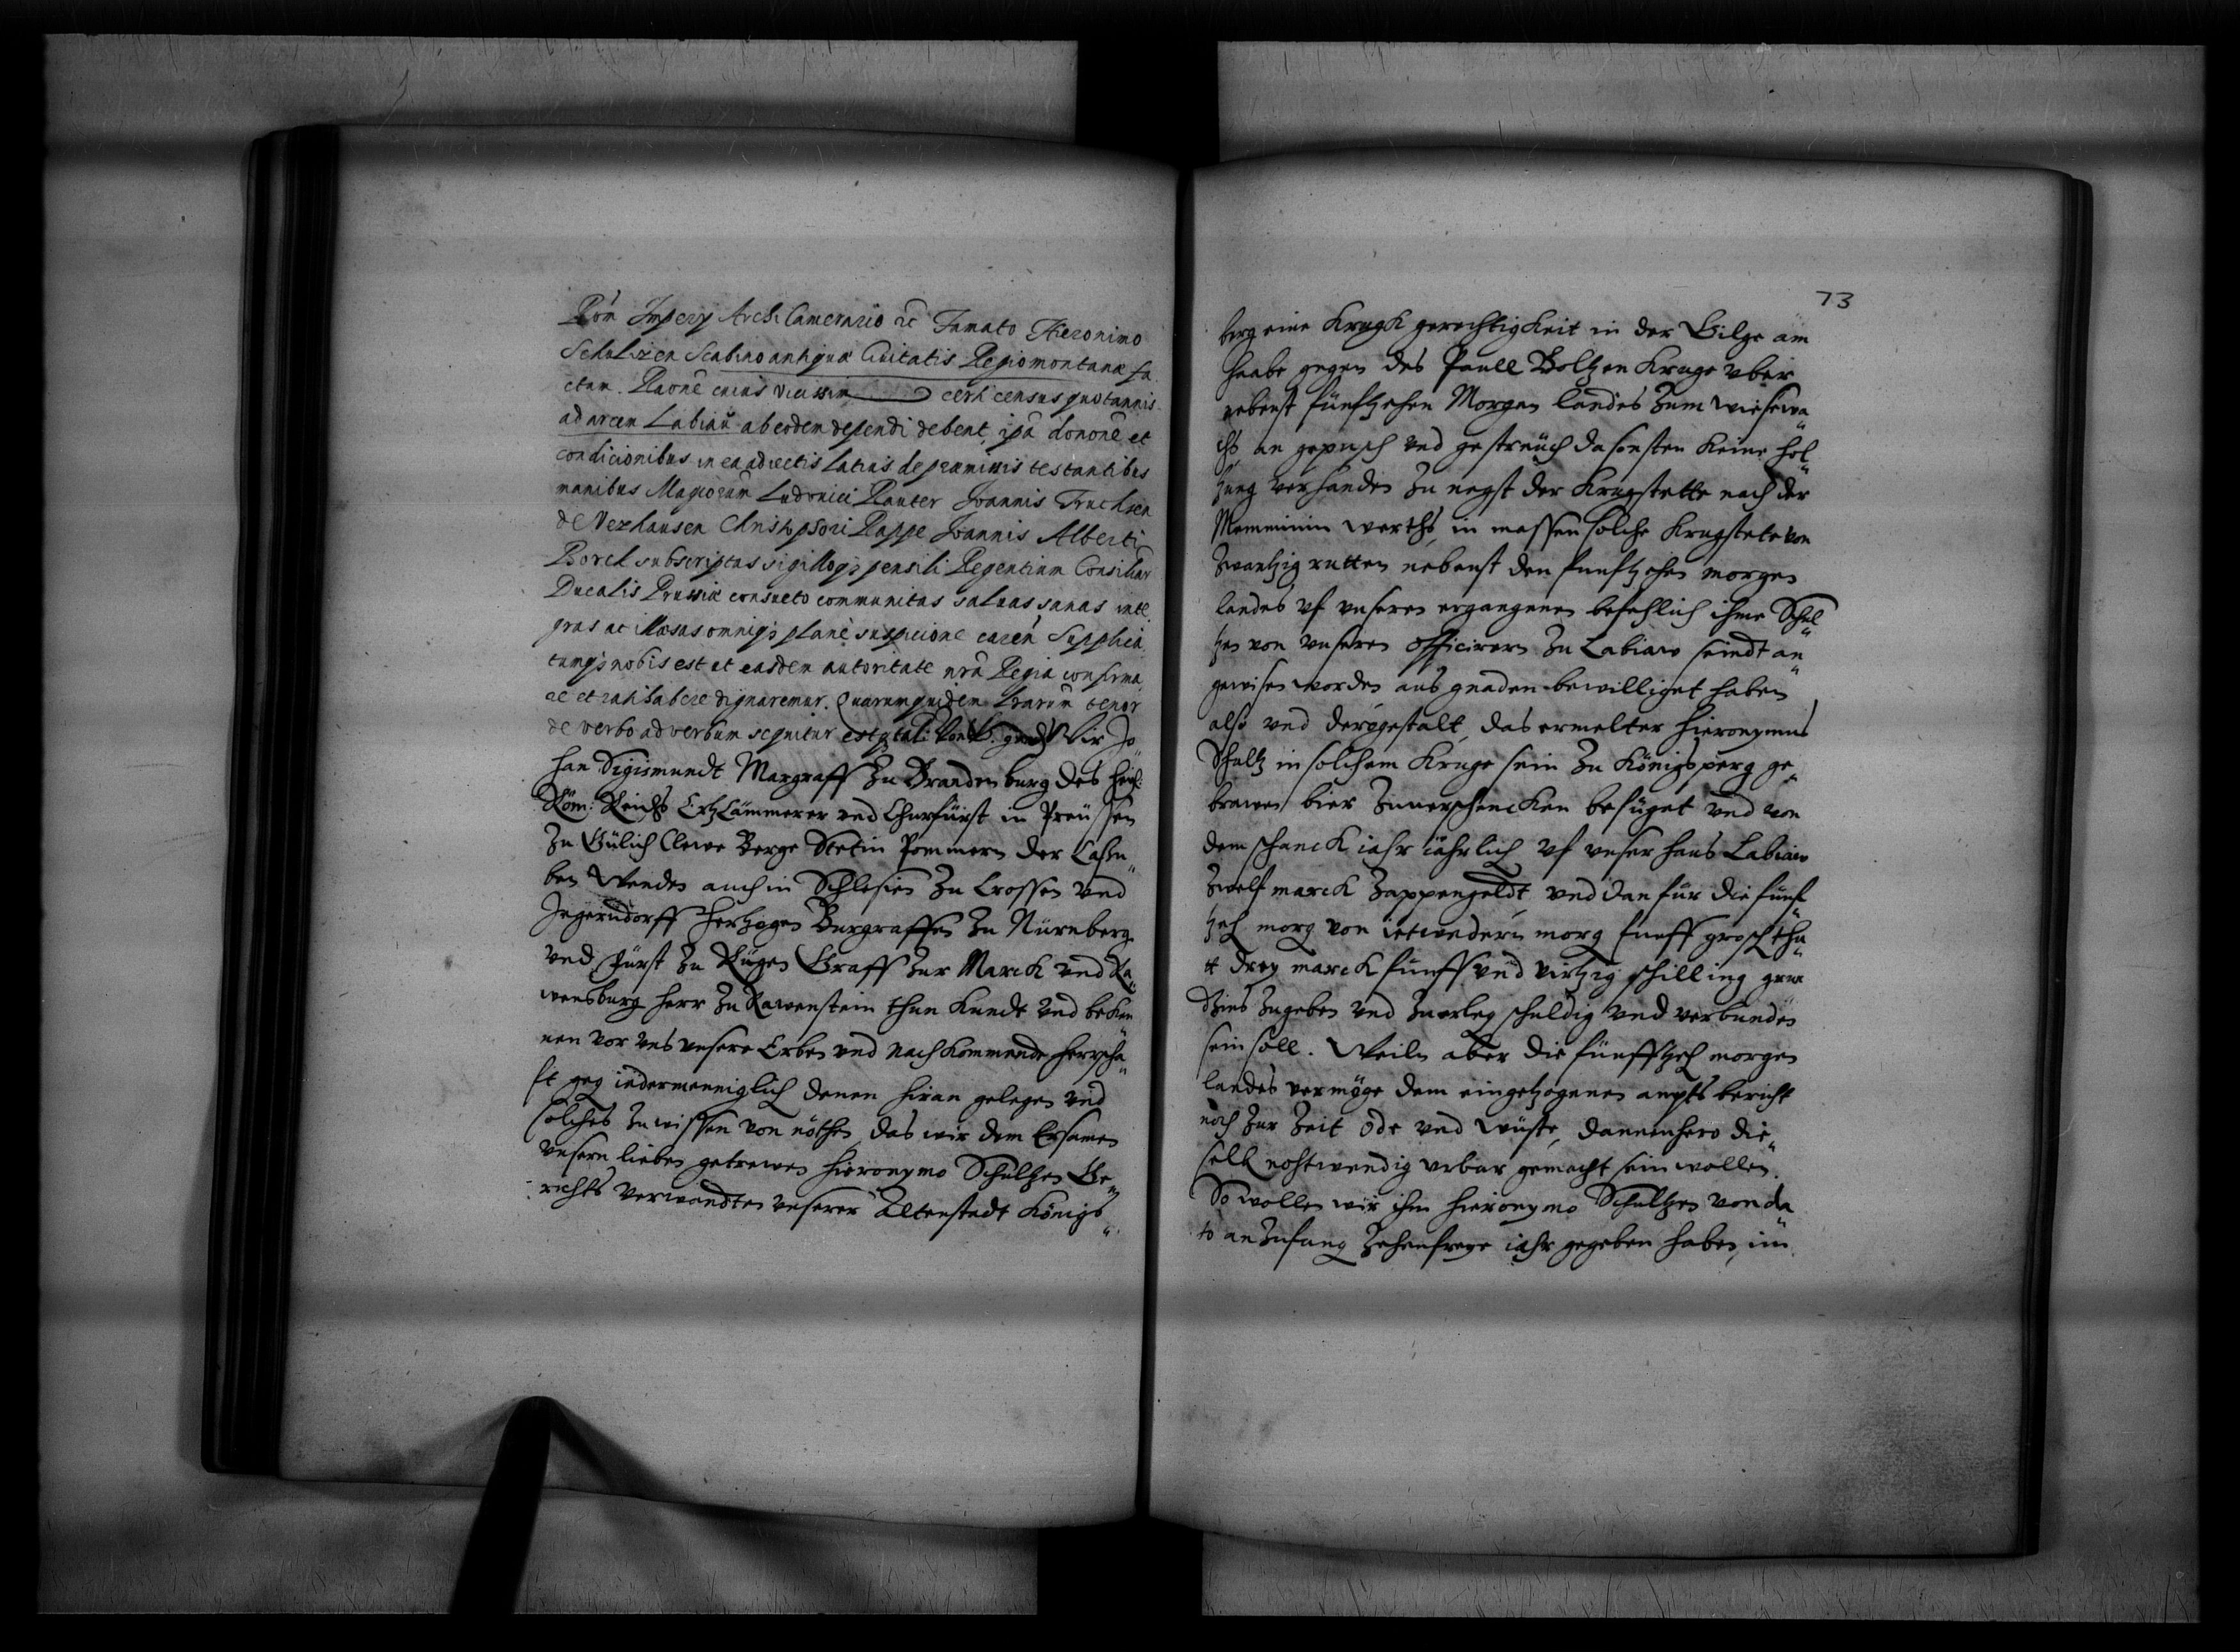 Rom Impery Archi Camerario etc Famato Hieronimo
Schulzen Scabino antiquae Civitatis Regiomontanae fa
ctam. Raone cuius vicissim certi census quotannis
ad arcem Labiau ab eodem dependi debent, ipã donone et
condicionibus in ea adiectis latius de praemissis testantibus
manibus Magcorum Ludovici Rauter Joannis Truchsen
de Wezhausen Christophori Rappe Joannis Alberti
Borck subscriptas sigilloqȝ pensili Regentium Consiliar
Ducalis Prussiae consueto communitas salvas sanas inte
gras ac illaesas omniqȝ planè suspicione caren Supplica
tumqȝ nobis est ut easdem autoritate nrã Regia confirma
re et ratihabere dignaremur. Quarum quidem lrarum tenor
de verbo ad verbum sequitur estqȝ tal: Von G. gnad Wir Jo
han Sigismundt Margraff Zu Brandenburg des heyl:
Röm: Reichs ErtzCämmerer vnd Churfürst in Preüssen
Zu Gülich Cleve Berge Stetin Pommern der Cassu
ben Wenden auch in Schlesien Zu Crossen vnd
Jegerndorff Hertzogen Burgraffen Zu Nürnberg
vnd Fürst Zu Rügen Graff Zur Marck vnd Ra
vensburg herr Zu Ravenstein thun Kundt vnd beken
nen vor vns vnsere Erben vnd nachkommende herrscha
ft geg iedermenniglich denen hiran gelegen vnd
solches Zu wissen von nöthen, das wir dem Ersamen
vnsern lieben getrewen Hieronymo Schultzen Ge
richts verwandten vnserer Altenstadt Königs
73
berg eine Krugk gerechtigkeit in der Gilge am
Haabe gegen des Paull Boltzen Kruge vber
nebenst fünftzehen Morgen landes Zum wiesewa
chs an gepusch vnd gestreüch da sonsten keine hol
tzung verhanden Zu negst der Krugstette nach der
werths, in massen solche Krugstete von
Zwantzig rutten nebenst den funftzehen morgen
landes vf vnseren ergangenen befehlich ihme Schul
tzen von vnseren Officirern Zu Labiaw seindt an
gewisen worden aus gnaden bewilliget haben
also vnd derogestalt, das ermelter Hieronymus
Schultz in solchem Kruge sein Zu Königsperg ge
brawen bier Zuuerschencken befüget vnd von
dem schanck iahr iährlich vf vnser haus Labiaw
Zwelf marck Zappengeldt vnd dan für die fünf
tzeh morg von ietwedern morg funff grosch thu
t drey marck fünff vnd virtzig schilling
Zins Zugeben vnd Zuerleg schuldig vnd verbunden
sein soll. Weiln aber die fünfftzeh morgen
landes vermöge dem eingezogenen ampts bericht
noch Zur Zeit öde vnd wüste, dannenhero die
selb nohtwendig vrbar gemacht sein wollen.
So wollen wir ihm Hieronymo Schultzen von da
to an Zufang Zehenfreye iahr gegeben haben, im